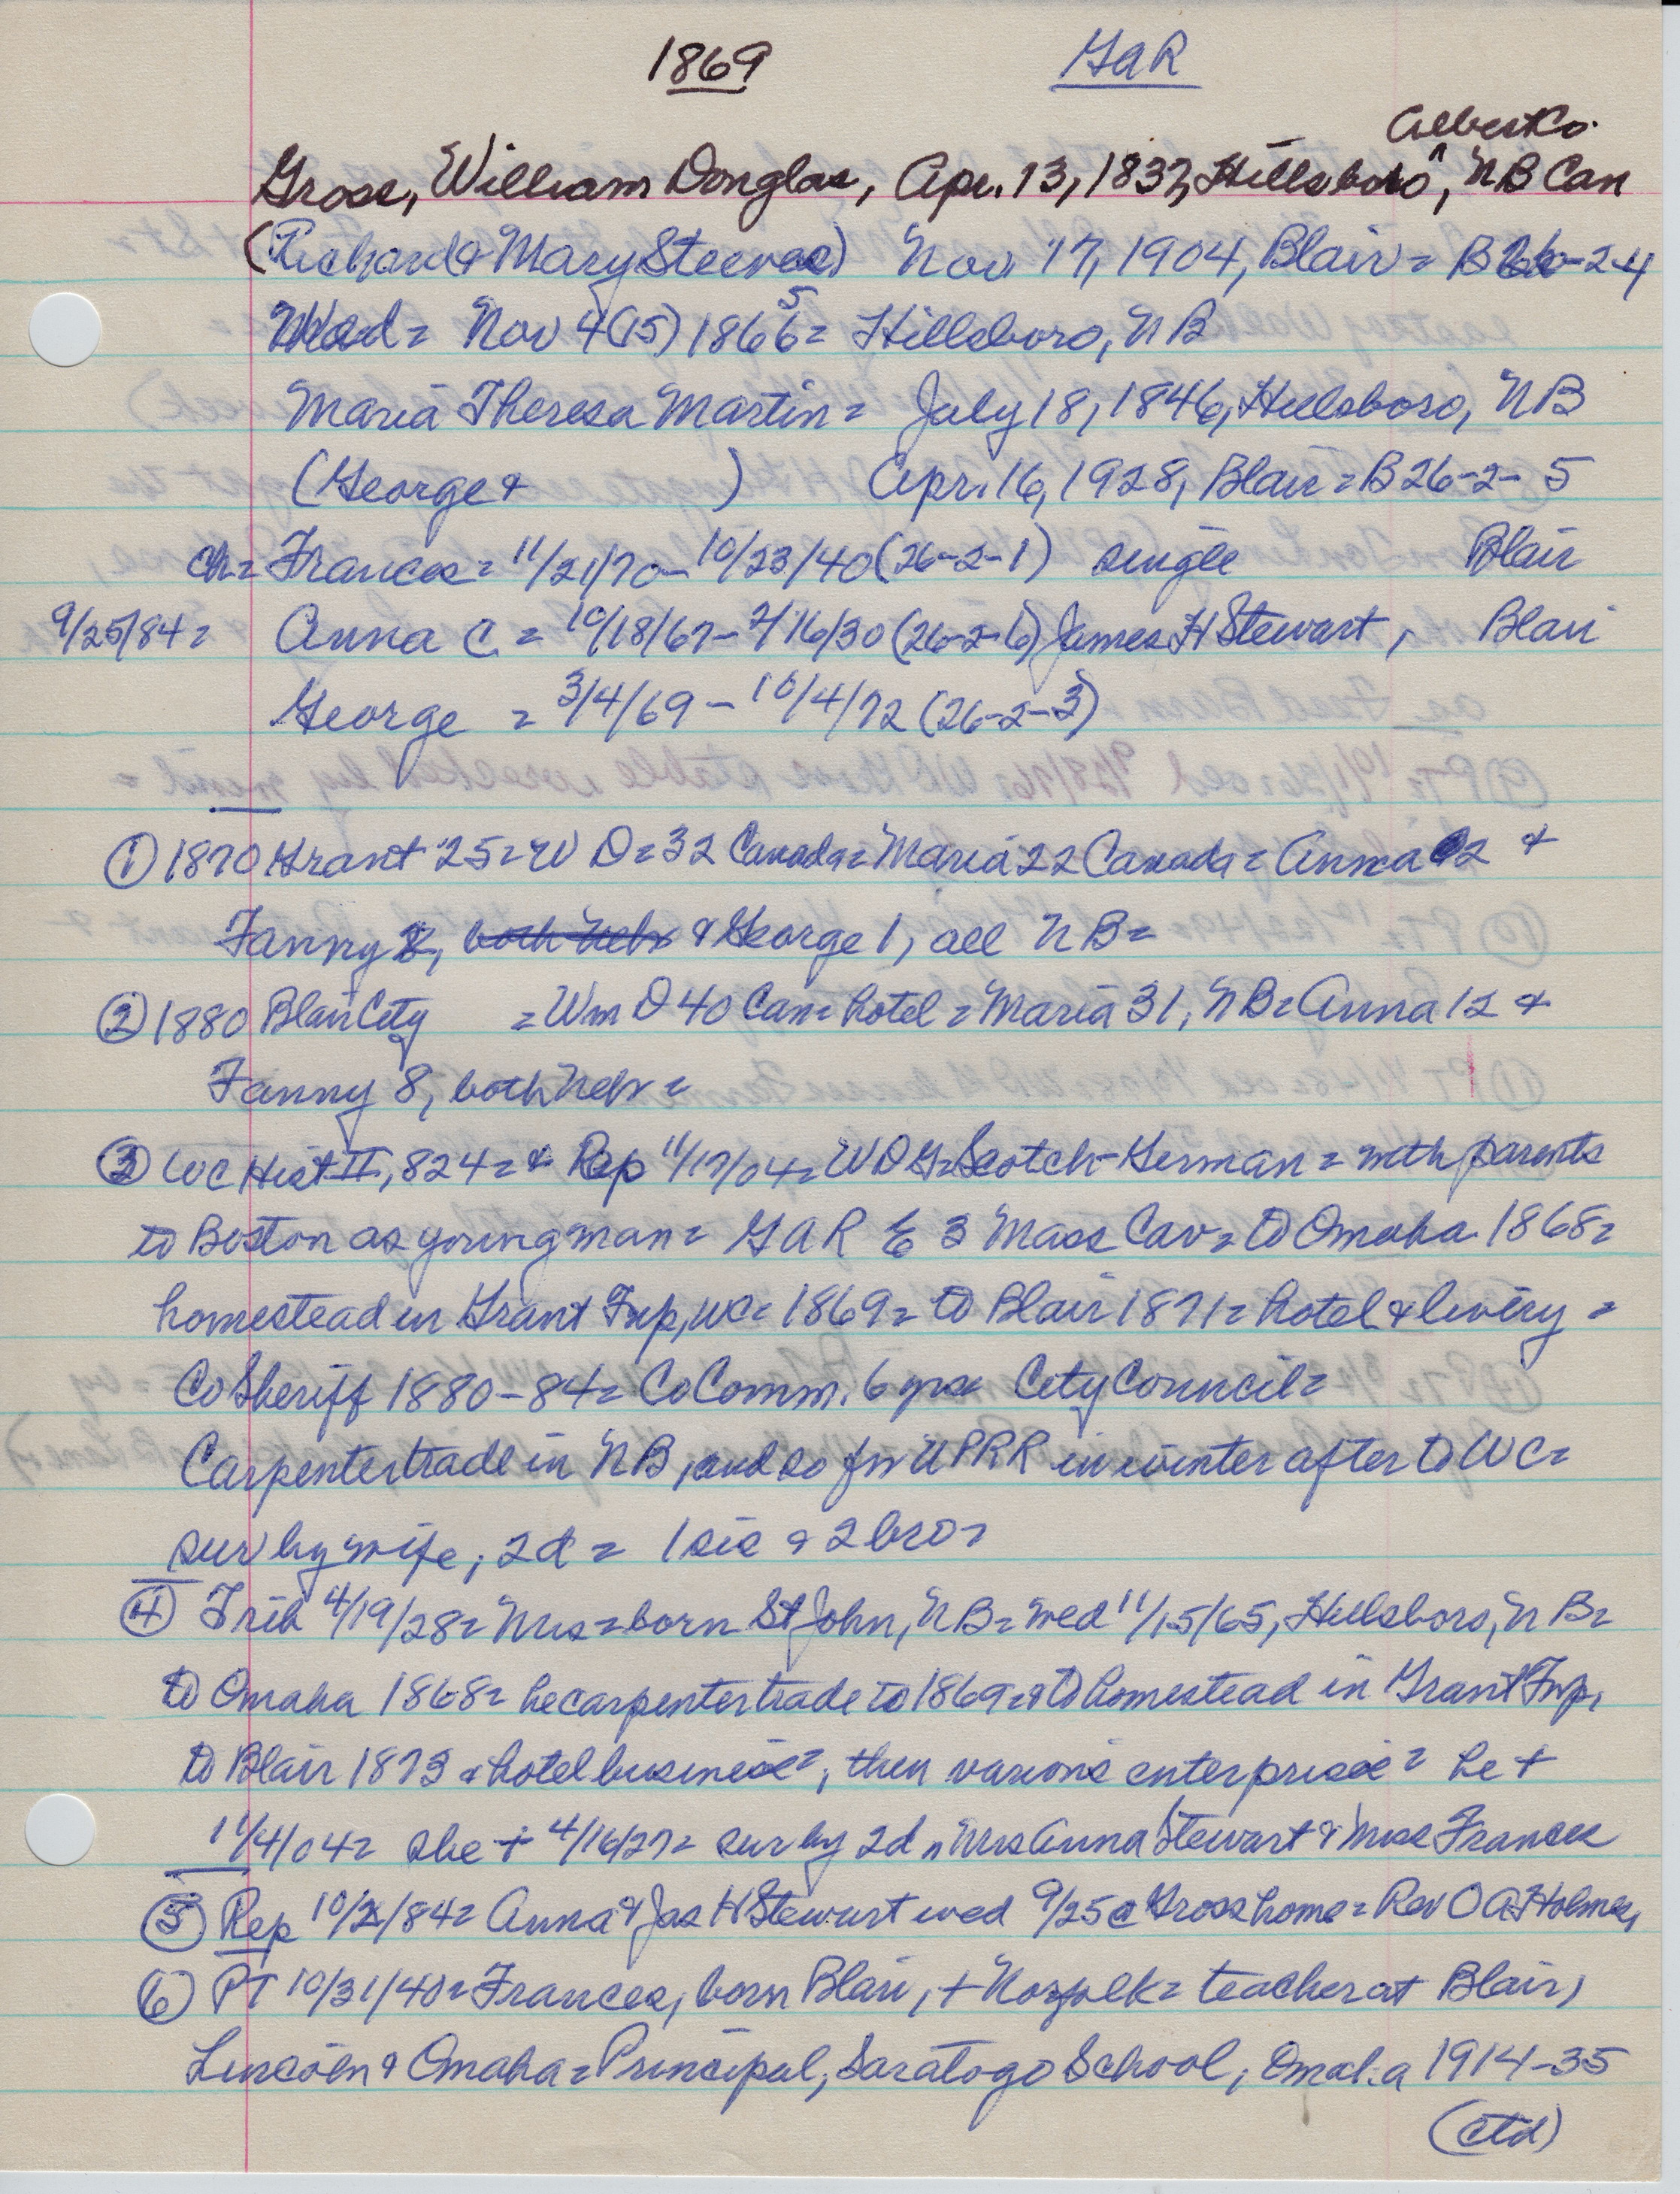 1869 GAR
Albert Co.
Gross, William Douglas, Apr. 13, 1837, Hillsboro ^, NB Can
(Richard & Mary Steeves) Nov 17, 1904, Blair = B 26-2-4
Wed = Nov 4 (15) 1866 5 = Hillsboro, NB
Maria Theresa Martin = July 18, 1846, Hillsboro, NB
(George & ) Apr. 16, 1928, Blair = B 26-2-5
ch = Frances = 11/21/70 - 10/23/40 (26-2-1) single Blair
9/25/84 = Anna C = 10/18/67 - 2/16/30 (26-2-6) James H Stewart, Blair
George = 3/4/69 - 10/4/72 (26-2-3)
① 1870 Grant 25 = W D = 32 Canada = Maria 22 Canada = Anna 2 &
Fanny, both Nebr & George 1, all NB =
② 1880 Blair City = Wm D 40 Can = hotel = Maria 31, NB = Anna 12 &
Fanny 8, both Nebr =
③ WC Hist II, 824 = & Rep 11/17/04 = WDG = Scotch-German = with parents
to Boston as young man = GAR E 3 Mass Cav = to Omaha 1868 =
homestead in Grant Twp, WC = 1869 = to Blair 1871 = hotel & livery =
Co Sheriff 1880-84 = Co Comm. 6 yrs = City Council =
Carpenter trade in NB, and so for UPRR in winter after to WC =
sur by wife, 2d = 1 sis & 2 bro =
④ Trib 4/19/28 = Mrs = born St John, NB = wed 11/15/65, Hillsboro, NB =
to Omaha 1868 = he carpenter trade to 1869 = & to homestead in Grant Twp,
to Blair 1873 & hotel business =, then various enterprises = he +
11/4/04 = she + 4/16/27 = sur by 2d, Mrs Anna Stewart & Miss Frances
⑤ Rep 10/2/84 = Anna & Jas H Stewart wed 9/25 @ Gross home = Rev O A Holmes,
⑥ PT 10/31/40 = Frances, born Blair, + Norfolk = teacher at Blair,
Lincoln & Omaha = Principal, Saratogo School, Omaha 1914-35
(ctd)